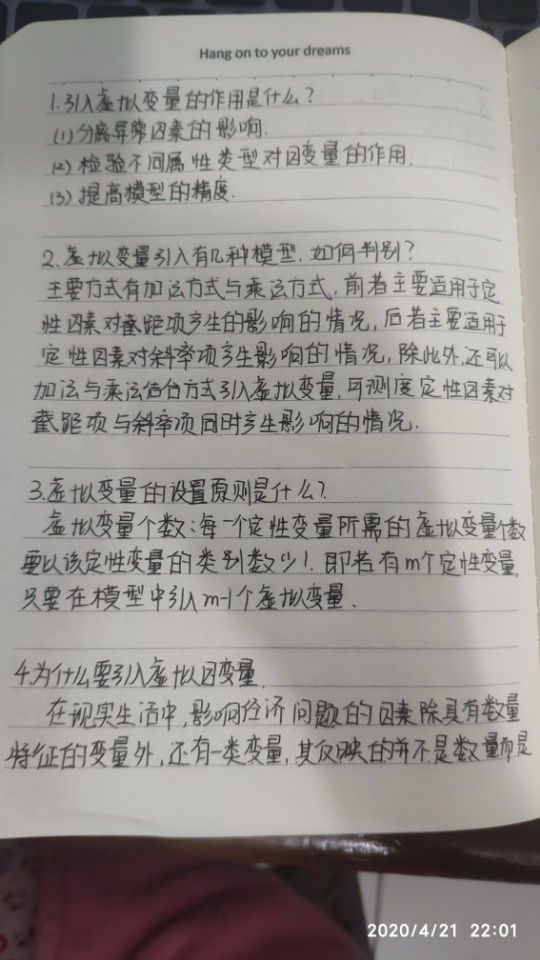 Hang on to your dreams
1.引入虚拟变量的作用是什么?
(1)分离异常因素的影响.
(2)检验不同属性类型对因变量的作用.
(3)提高模型的精度.
2.虚拟变量引入有几种模型.如何判别?
主要方式有加法方式与乘法方式,前者主要适用于定
性因素对截距项产生的影响的情况,后者主要适用于
定性因素对斜率项产生影响的情况,除此外,还可以
加法与乘法组合方式引入虚拟变量,可测度定性因素对
截距项与斜率项同时产生影响的情况.
3.虚拟变量的设置原则是什么?
虚拟变量个数:每一个定性变量所需的虚拟变量个数
要以该定性变量的类别数少1.即若有m个定性变量,
只要在模型中引入m-1个虚拟变量.
4.为什么要引入虚拟因变量.
在现实生活中,影响经济问题的因素除具有数量
特征的变量外,还有一类变量,其反映的并不是数量而是
2020/4/21 22:01